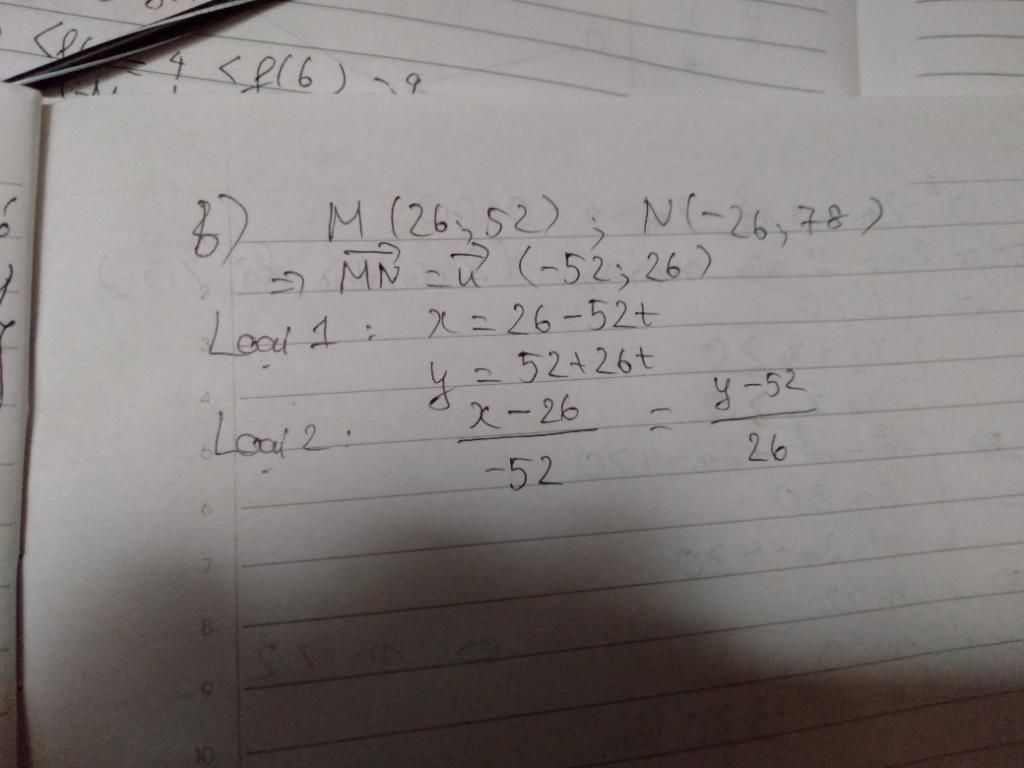 = 4 < f(6) = 9
8) M (26; 52) ; N(-26; 78)
=> MN = u (-52; 26)
Loại 1 : x = 26 - 52t
y = 52 + 26t
Loại 2 : x - 26 / -52 = y - 52 / 26
2
3
4
5
6
7
8
9
10